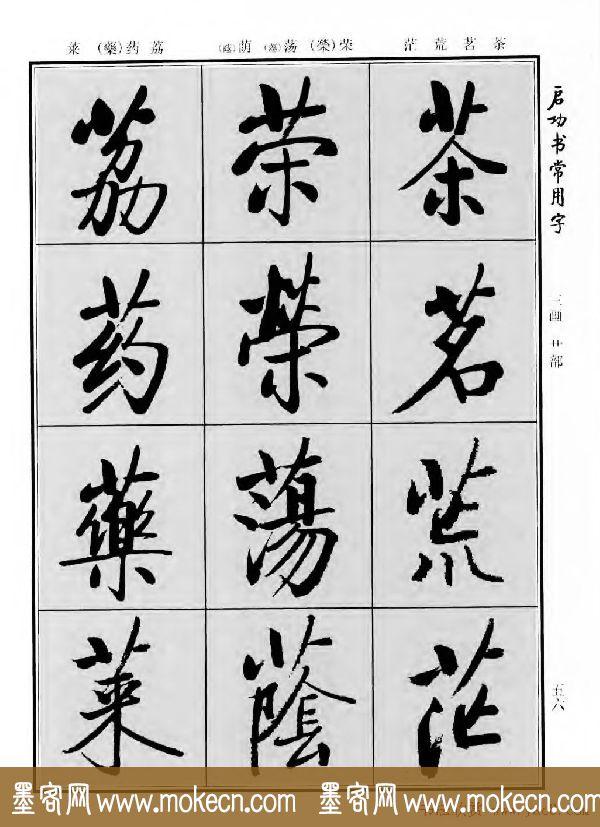 启功书常用字
三画 艹部
五六
茶 茗 荒 茫
荣(榮)荡(蕩)荫(蔭)
荔 药(藥)莱
茶
茗
荒
茫
荣
榮
蕩
蔭
荔
药
藥
萊
墨客网 www.mokecn.com 墨客网 www.mokecn.com